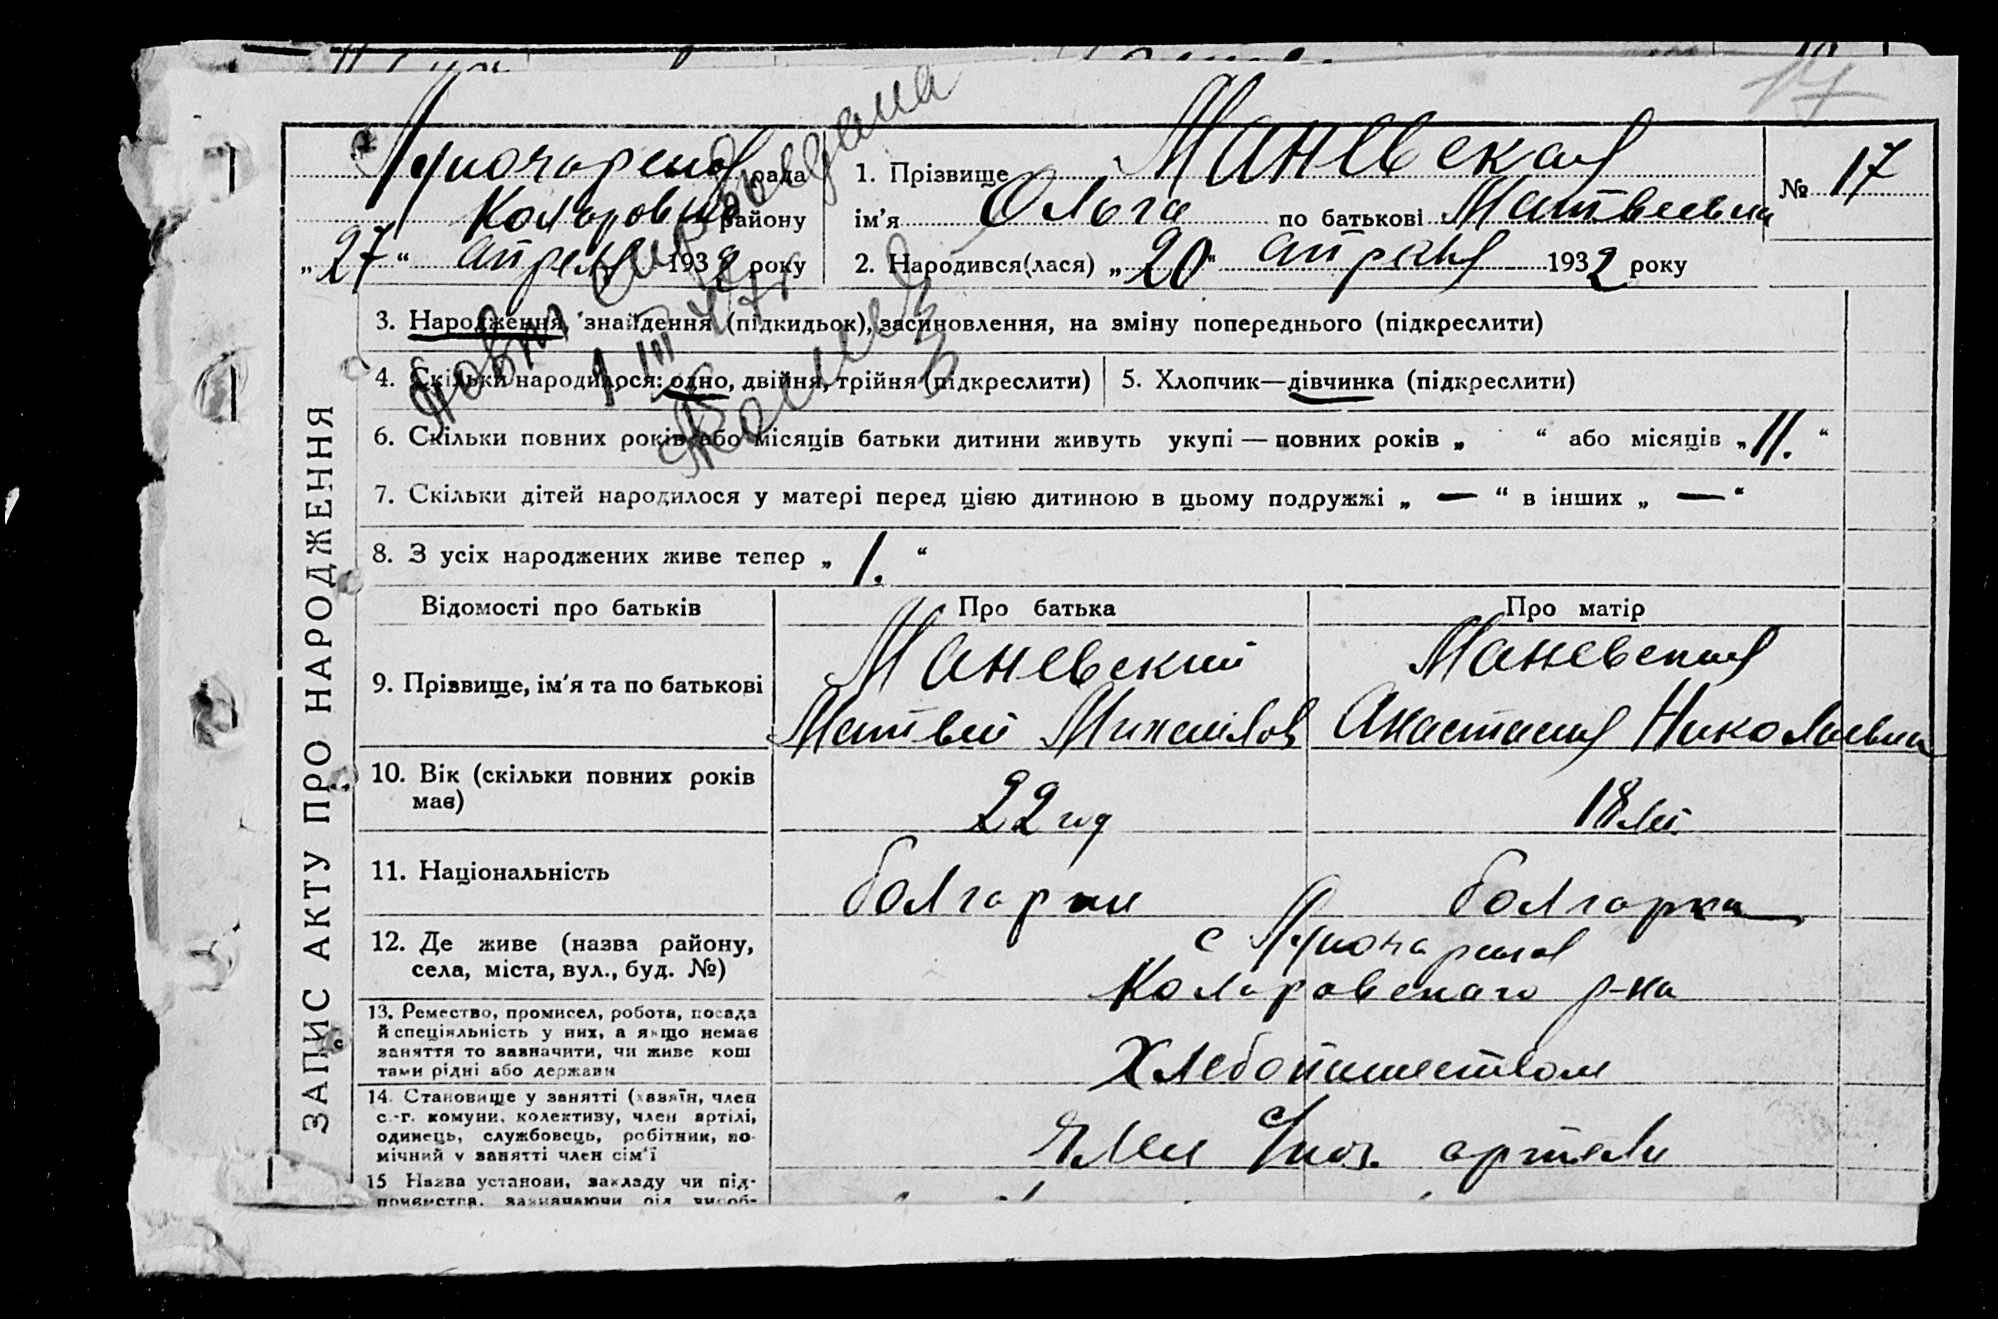 17
Луночарская рада
Коларовск району
„27“ апреля 1932 року
Повт. свид. выдана
1 III 47 г
1. Прізвище Маневская
ім'я Ольга по батькові Матвеевна
№ 17
2. Народився(лася) „20“ апреля 1932 року
ЗАПИС АКТУ ПРО НАРОДЖЕННЯ
3. Народження, знайдення (підкидьок), засиновлення, на зміну попереднього (підкреслити)
4. Скільки народилося: одно, двійня, трійня (підкреслити)
5. Хлопчик—дівчинка (підкреслити)
6. Скільки повних років або місяців батьки дитини живуть укупі — повних років „ “ або місяців „11.“
7. Скільки дітей народилося у матері перед цією дитиною в цьому подружжі „ — “ в інших „ — “
8. З усіх народжених живе тепер „ 1. “
Відомості про батьків
Про батька
Про матір
9. Прізвище, ім'я та по батькові
Маневский
Матвей Михайлов
Маневская
Анастасия Николаевна
10. Вік (скільки повних років
має)
22 год
18 лет
11. Національність
болгарин
болгарка
12. Де живе (назва району,
села, міста, вул., буд. №)
с Луночарская
Коларовскаго р-на
13. Ремество, промисел, робота, посада
й спеціяльність у них, а якщо немає
заняття то зазначити, чи живе кош
тами рідні або держави
Хлебопашеством
14. Становище у занятті (хазяїн, член
с.-г. комуни, колективу, член артілі,
одинець, службовець, робітник, по-
мічний у занятті член сім'ї
Член артели
15 Назва установи, закладу чи під-
приємства, зазначаючи рід вироб-